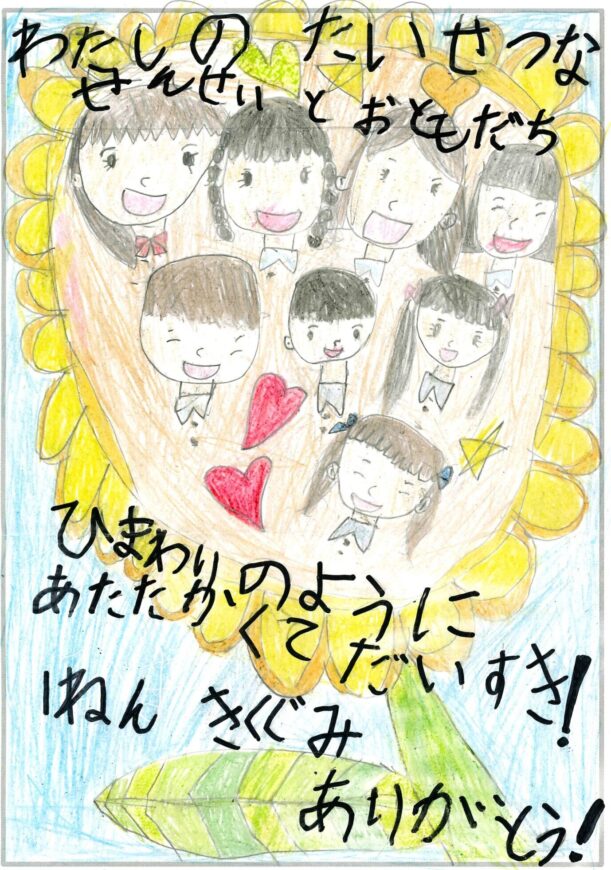 わたしの たいせつな
せんせい と おともだち
ひまわりのように
あたたかくて だいすき!
1ねん きくぐみ
ありがとう!